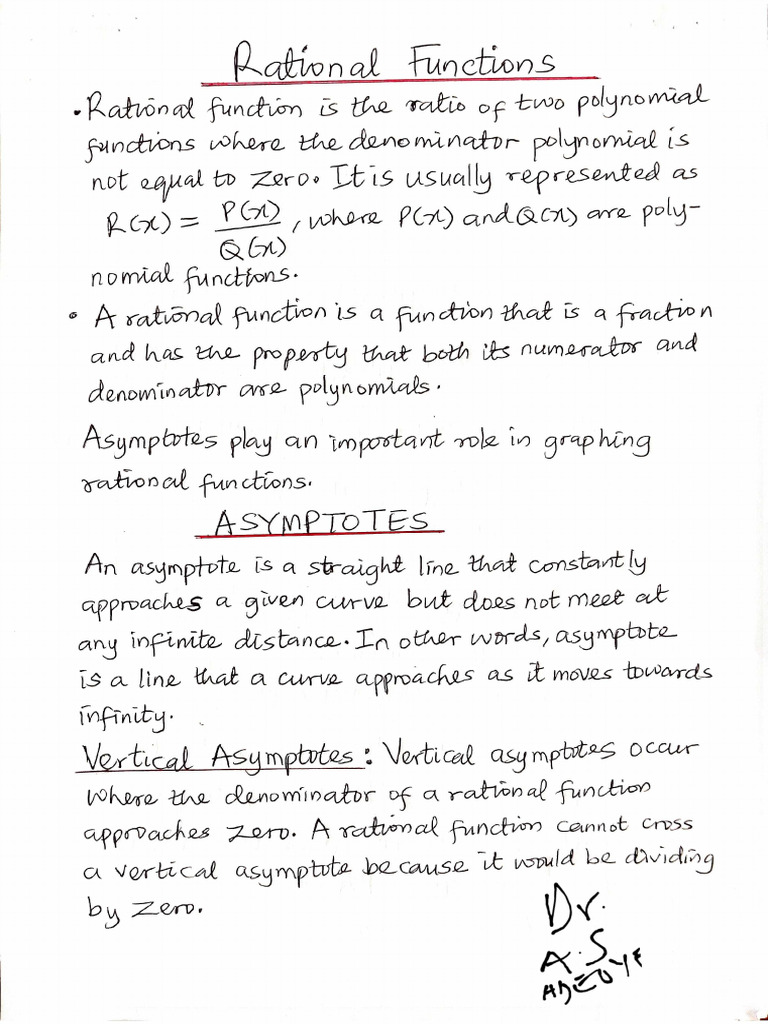 Rational Functions
• Rational function is the ratio of two polynomial
functions where the denominator polynomial is
not equal to zero. It is usually represented as
R(x) = P(x)/Q(x), where P(x) and Q(x) are poly-
nomial functions.
• A rational function is a function that is a fraction
and has the property that both its numerator and
denominator are polynomials.
Asymptotes play an important role in graphing
rational functions.
ASYMPTOTES
An asymptote is a straight line that constantly
approaches a given curve but does not meet at
any infinite distance. In other words, asymptote
is a line that a curve approaches as it moves towards
infinity.
Vertical Asymptotes: Vertical asymptotes occur
where the denominator of a rational function
approaches zero. A rational function cannot cross
a vertical asymptote because it would be dividing
by zero.
Dr.
A.S